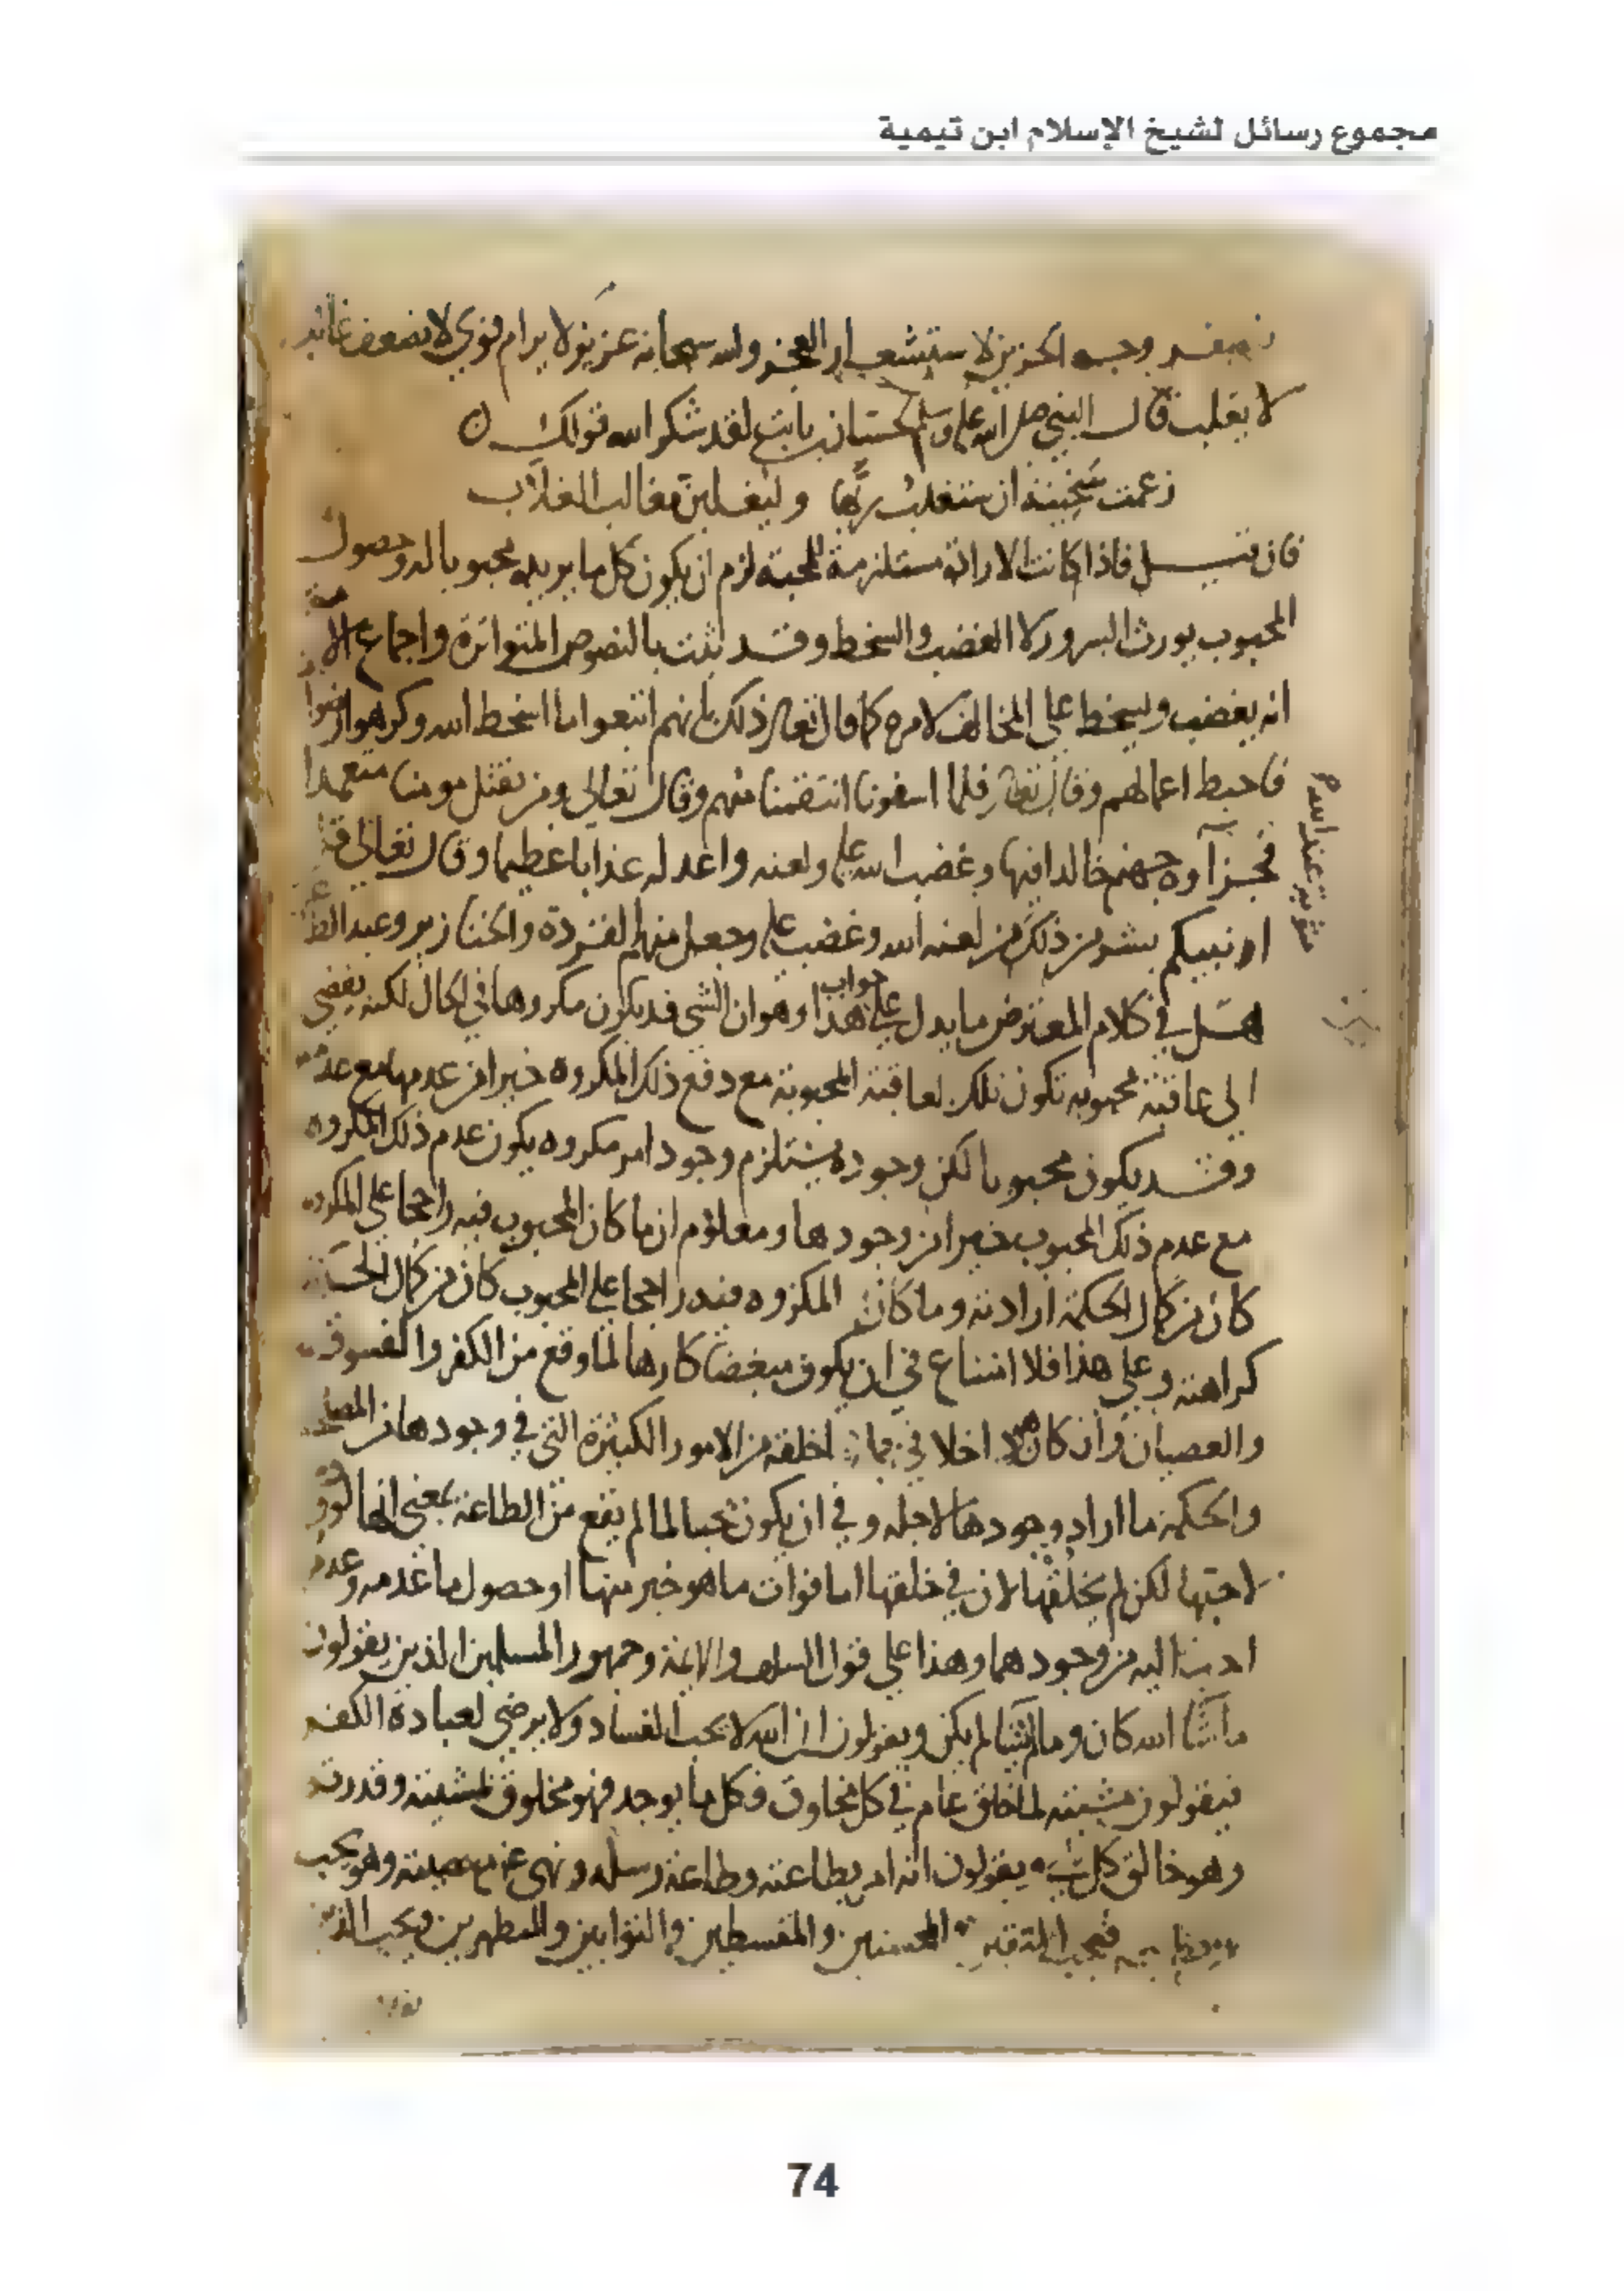 مجموع رسائل لشيخ الإسلام ابن تيمية
وجه الحزين لاستشعار العجز والله سبحانه عزيز لا يرام قوي لا
لا يغلب قال النبي صلى الله عليه وسلم لحسان بن ثابت لقد شكر الله قولك
زعمت سخينة ان ستغلب ربها وليغلبن مغالب الغلاب
فان قيل فاذا كانت الارادة مستلزمة للمحبة لزم ان يكون كل ما يريده محبوبا له وحصول
المحبوب يورث السرور لا الغضب والسخط وقد ثبت بالنصوص المتواترة واجماع
انه يغضب ويسخط على المخالف لامره كما قال تعالى ذلك بانهم اتبعوا ما اسخط الله وكرهوا رضوا
فاحبط اعمالهم وقال تعالى فلما اسفونا انتقمنا منهم وقال تعالى ومن يقتل مومنا متعمدا
فجزآوه جهنم خالدا فيها وغضب الله عليه ولعنه واعد له عذابا عظيما وقال تعالى
انبيكم بشر من ذلك من لعنه الله وغضب عليه وجعل منهم القردة والخنازير وعبد الطا
مثوبة عند الله
قيل في كلام المعترض ما يدل على جواب هذا وهو ان الشي قد يكون مكروها في الحال لكنه يفضي
الى عاقبة محبوبة تكون تلك العاقبة المحبوبة مع دفع ذلك المكروه خيرا من عدمها مع
وقد يكون محبوبا لكن وجوده يستلزم وجود امر مكروه يكون عدم ذلك المكروه
مع عدم ذلك المحبوب خيرا من وجودها ومعلوم ان ما كان المحبوب فيه راجحا على المكروه
كان من كمال الحكمة ارادته وما كان المكروه فيه راجحا على المحبوب كان من كمال
كراهته وعلى هذا فلا امتناع في ان يكون مبغضا كارها لما وقع من الكفر والفسوق
والعصيان وان كان داخلا في خلقه من الامور الكثيرة التي في وجودها من
والحكمة ما اراد وجودها لاجله وفي ان يكون محبا لما لم يقع من الطاعة بمعنى انها لو
لاحبها لكن لم يخلقها لان في خلقها اما فوات ما هو خير منها او حصول ما عدمه وعدم
احب اليه من وجودهما وهذا على قول السلف والايمة وجمهور المسلمين الذين يقولون
ما شا الله كان وما لم يشا لم يكن ويقولون ان الله لا يحب الفساد ولا يرضى لعباده الكفر
فيقولون مشيئته لما خلق عام في كل مخلوق فكل ما يوجد فهو مخلوق بمشيئته وقدرته
وهو خالق كل شيء ويقولون انه امر بطاعته وطاعة رسله ونهى عن معصيته وهو يحب
فيحب المتقين المحسنين والمقسطين والتوابين والمتطهرين ويحب
74